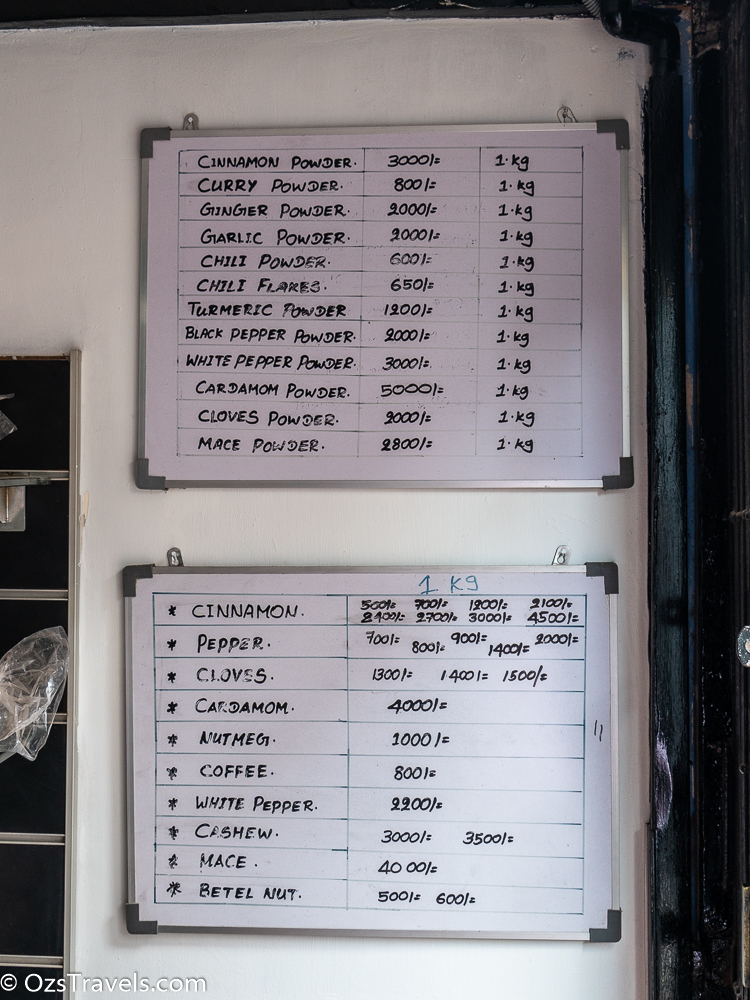 CINNAMON POWDER. 3000/= 1.kg
CURRY POWDER. 800/= 1.kg
GINGER POWDER. 2000/= 1.kg
GARLIC POWDER. 2000/= 1.kg
CHILI POWDER. 600/= 1.kg
CHILI FLAKES. 650/= 1.kg
TURMERIC POWDER 1200/= 1.kg
BLACK PEPPER POWDER. 2000/= 1.kg
WHITE PEPPER POWDER. 3000/= 1.kg
CARDAMOM POWDER. 5000/= 1.kg
CLOVES POWDER. 2000/= 1.kg
MACE POWDER. 2800/= 1.kg
1 KG
* CINNAMON. 500/= 700/= 1200/= 2100/=
2400/= 2700/= 3000/= 4500/=
* PEPPER. 700/= 800/= 900/= 1400/= 2000/=
* CLOVES. 1300/= 1400/= 1500/=
* CARDAMOM. 4000/=
* NUTMEG. 1000/=
* COFFEE. 800/=
* WHITE PEPPER. 2200/=
* CASHEW. 3000/= 3500/=
* MACE. 4000/=
* BETEL NUT. 500/= 600/=
© OzsTravels.com